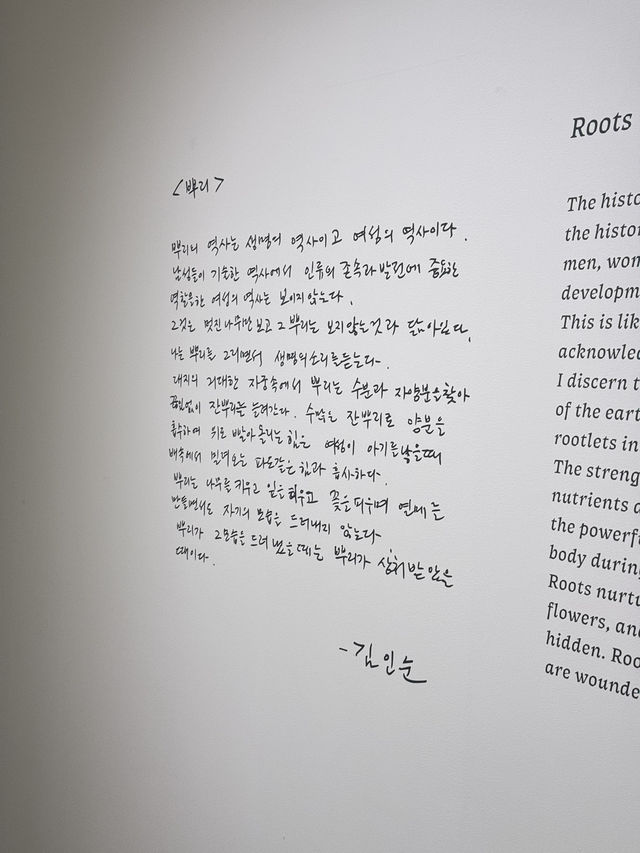 <뿌리>
뿌리의 역사는 생명의 역사이고 여성의 역사이다.
남성들이 기술한 역사에서 인류의 존속과 발전에 중요한
역할을한 여성의 역사는 보이지 않는다.
그것은 멋진 나무만 보고 그 뿌리는 보지 않는 것과 닮아있다.
나는 뿌리를 그리면서 생명의 소리를 듣는다.
대지의 거대한 자궁속에서 뿌리는 수분과 자양분을 찾아
끊임없이 잔뿌리를 늘려간다. 수많은 잔뿌리로 양분을
흡수하여 위로 빨아올리는 힘은 여성이 아기를 낳을때
뱃속에서 밀려오는 파도같은 힘과 흡사하다.
뿌리는 나무를 키우고 잎을 틔우고 꽃을 피우며 열매를
만들면서도 자기의 모습을 드러내지 않는다
뿌리가 그 모습을 드러냈을 때는 뿌리가 상처 받았을
때이다.
- 김인순
Roots
The histo
the histor
men, wom
developm
This is lik
acknowled
I discern t
of the eart
rootlets in
The streng
nutrients a
the powerfu
body during
Roots nurtu
flowers, and
hidden. Roo
are wounde